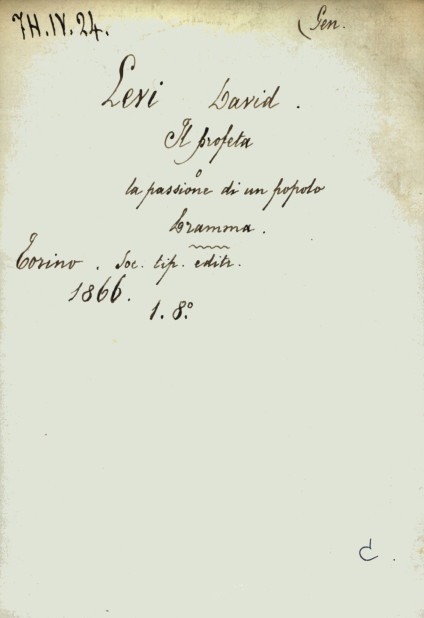 7H.IV.24.
Gen.
Levi David.
Il profeta
o
la passione di un popolo
Dramma.
Torino. Soc. tip. editr.
1866.
1. 8.º
C.